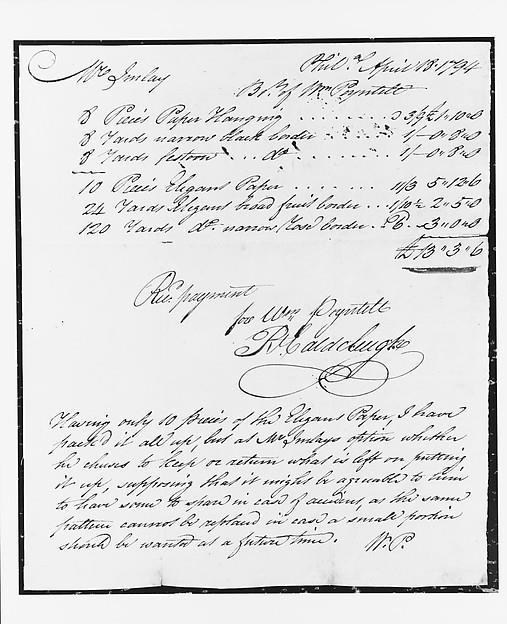 Philad. April 18. 1794
Mr. Imlay
Bt. of Wm. Poyntell
8 Pieces Paper Hanging 3/9 1" 10 " 0
8 Yards narrow black border 1/- 0 " 8 " 0
8 Yards festoon do. 1/- 0 " 8 " 0
10 Pieces Elegant Paper 11/3 5 " 12 " 6
24 Yards Elegant broad fruit border 1/10½ 2 " 5 " 0
120 Yards do. narrow Rose border 6. 3 " 0 " 0
£ 13 " 3 " 6
Rec. payment
for Wm. Poyntell
R Caldcleugh
Having only 10 Pieces of the Elegant Paper, I have
pack'd it all up, but at Mr. Imlays option whether
he chuses to keep or return what is left on putting
it up, supposing that it might be agreeable to him
to have some to spare in case of accident, as the same
pattern cannot be replaced in case a small portion
should be wanted at a future time.
W. P.